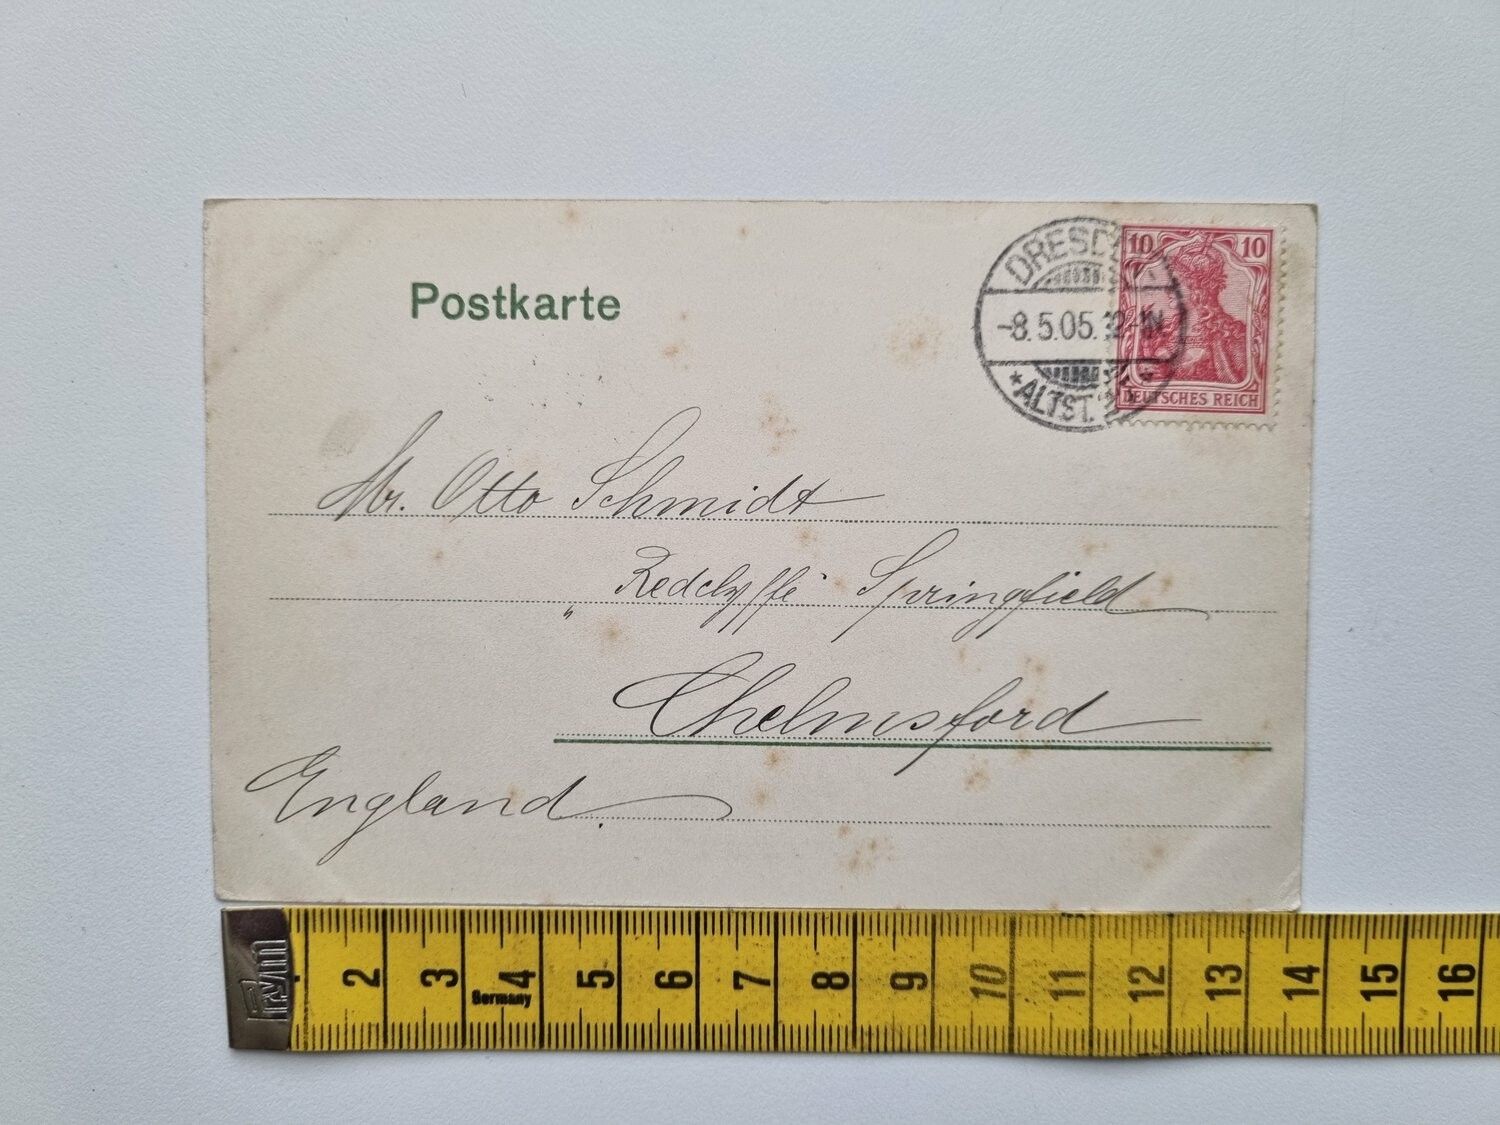 Postkarte
DRESDEN
-8.5.05. 12-1N.
* ALTST. *
10 10
DEUTSCHES REICH
Mr. Otto Schmidt
„Redclyffe“ Springfield
Chelmsford
England.
Prym
2 3 4 5 6 7 8 9 10 11 12 13 14 15 16
Germany